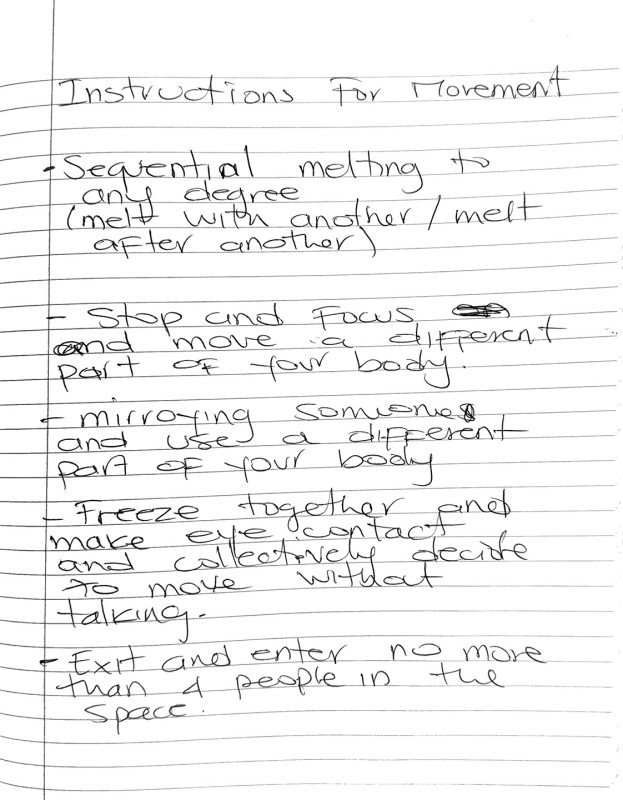 Instructions For Movement
- Sequential melting to
any degree
(melt with another / melt
after another)
- Stop and Focus
and move a different
part of your body.
- mirroring someone
and use a different
part of your body
- Freeze together and
make eye contact
and collectively decide
to move without
talking.
- Exit and enter no more
than 4 people in the
space.